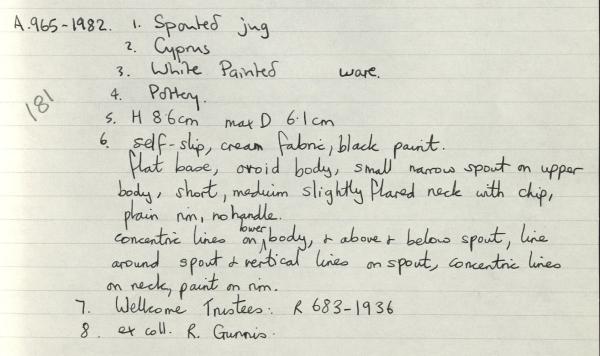 A.965-1982. 1. Spouted jug
2. Cyprus
3. White Painted ware.
4. Pottery.
181
5. H 8.6cm max D 6.1cm
6. self-slip, cream fabric, black paint.
flat base, ovoid body, small narrow spout on upper
body, short, medium slightly flared neck with chip,
plain rim, no handle.
concentric lines on lower body, & above & below spout, line
around spout & vertical lines on spout, concentric lines
on neck, paint on rim.
7. Wellcome Trustees: R 683-1936
8. ex coll. R. Gunnis.